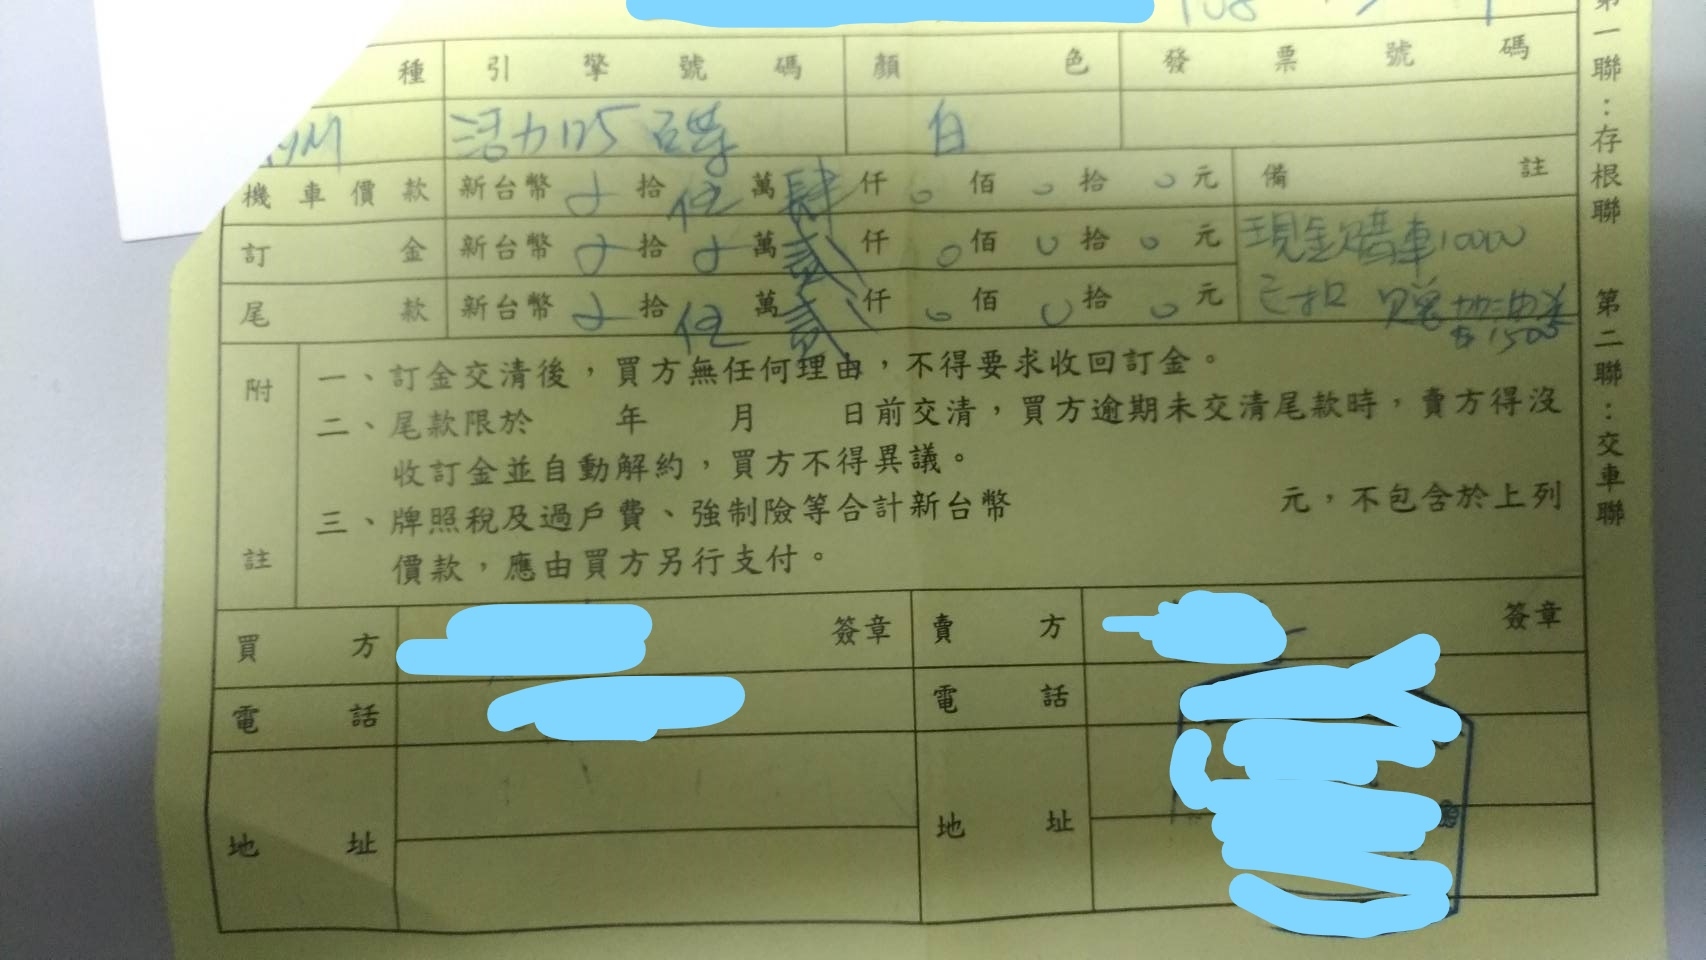 種 引擎號碼 顏色 發票號碼
活力125 碟 白
機車價款 新台幣 0 拾 伍 萬 肆 仟 0 佰 0 拾 0 元 備註
訂金 新台幣 0 拾 0 萬 貳 仟 0 佰 0 拾 0 元 現金購車1000
尾款 新台幣 0 拾 伍 萬 貳 仟 0 佰 0 拾 0 元 已扣 贈加油券
1500
附註
一、訂金交清後，買方無任何理由，不得要求收回訂金。
二、尾款限於 年 月 日前交清，買方逾期未交清尾款時，賣方得沒
收訂金並自動解約，買方不得異議。
三、牌照稅及過戶費、強制險等合計新台幣 元，不包含於上列
價款，應由買方另行支付。
買方 簽章 賣方 簽章
電話 電話
地址 地址
第一聯：存根聯 第二聯：交車聯